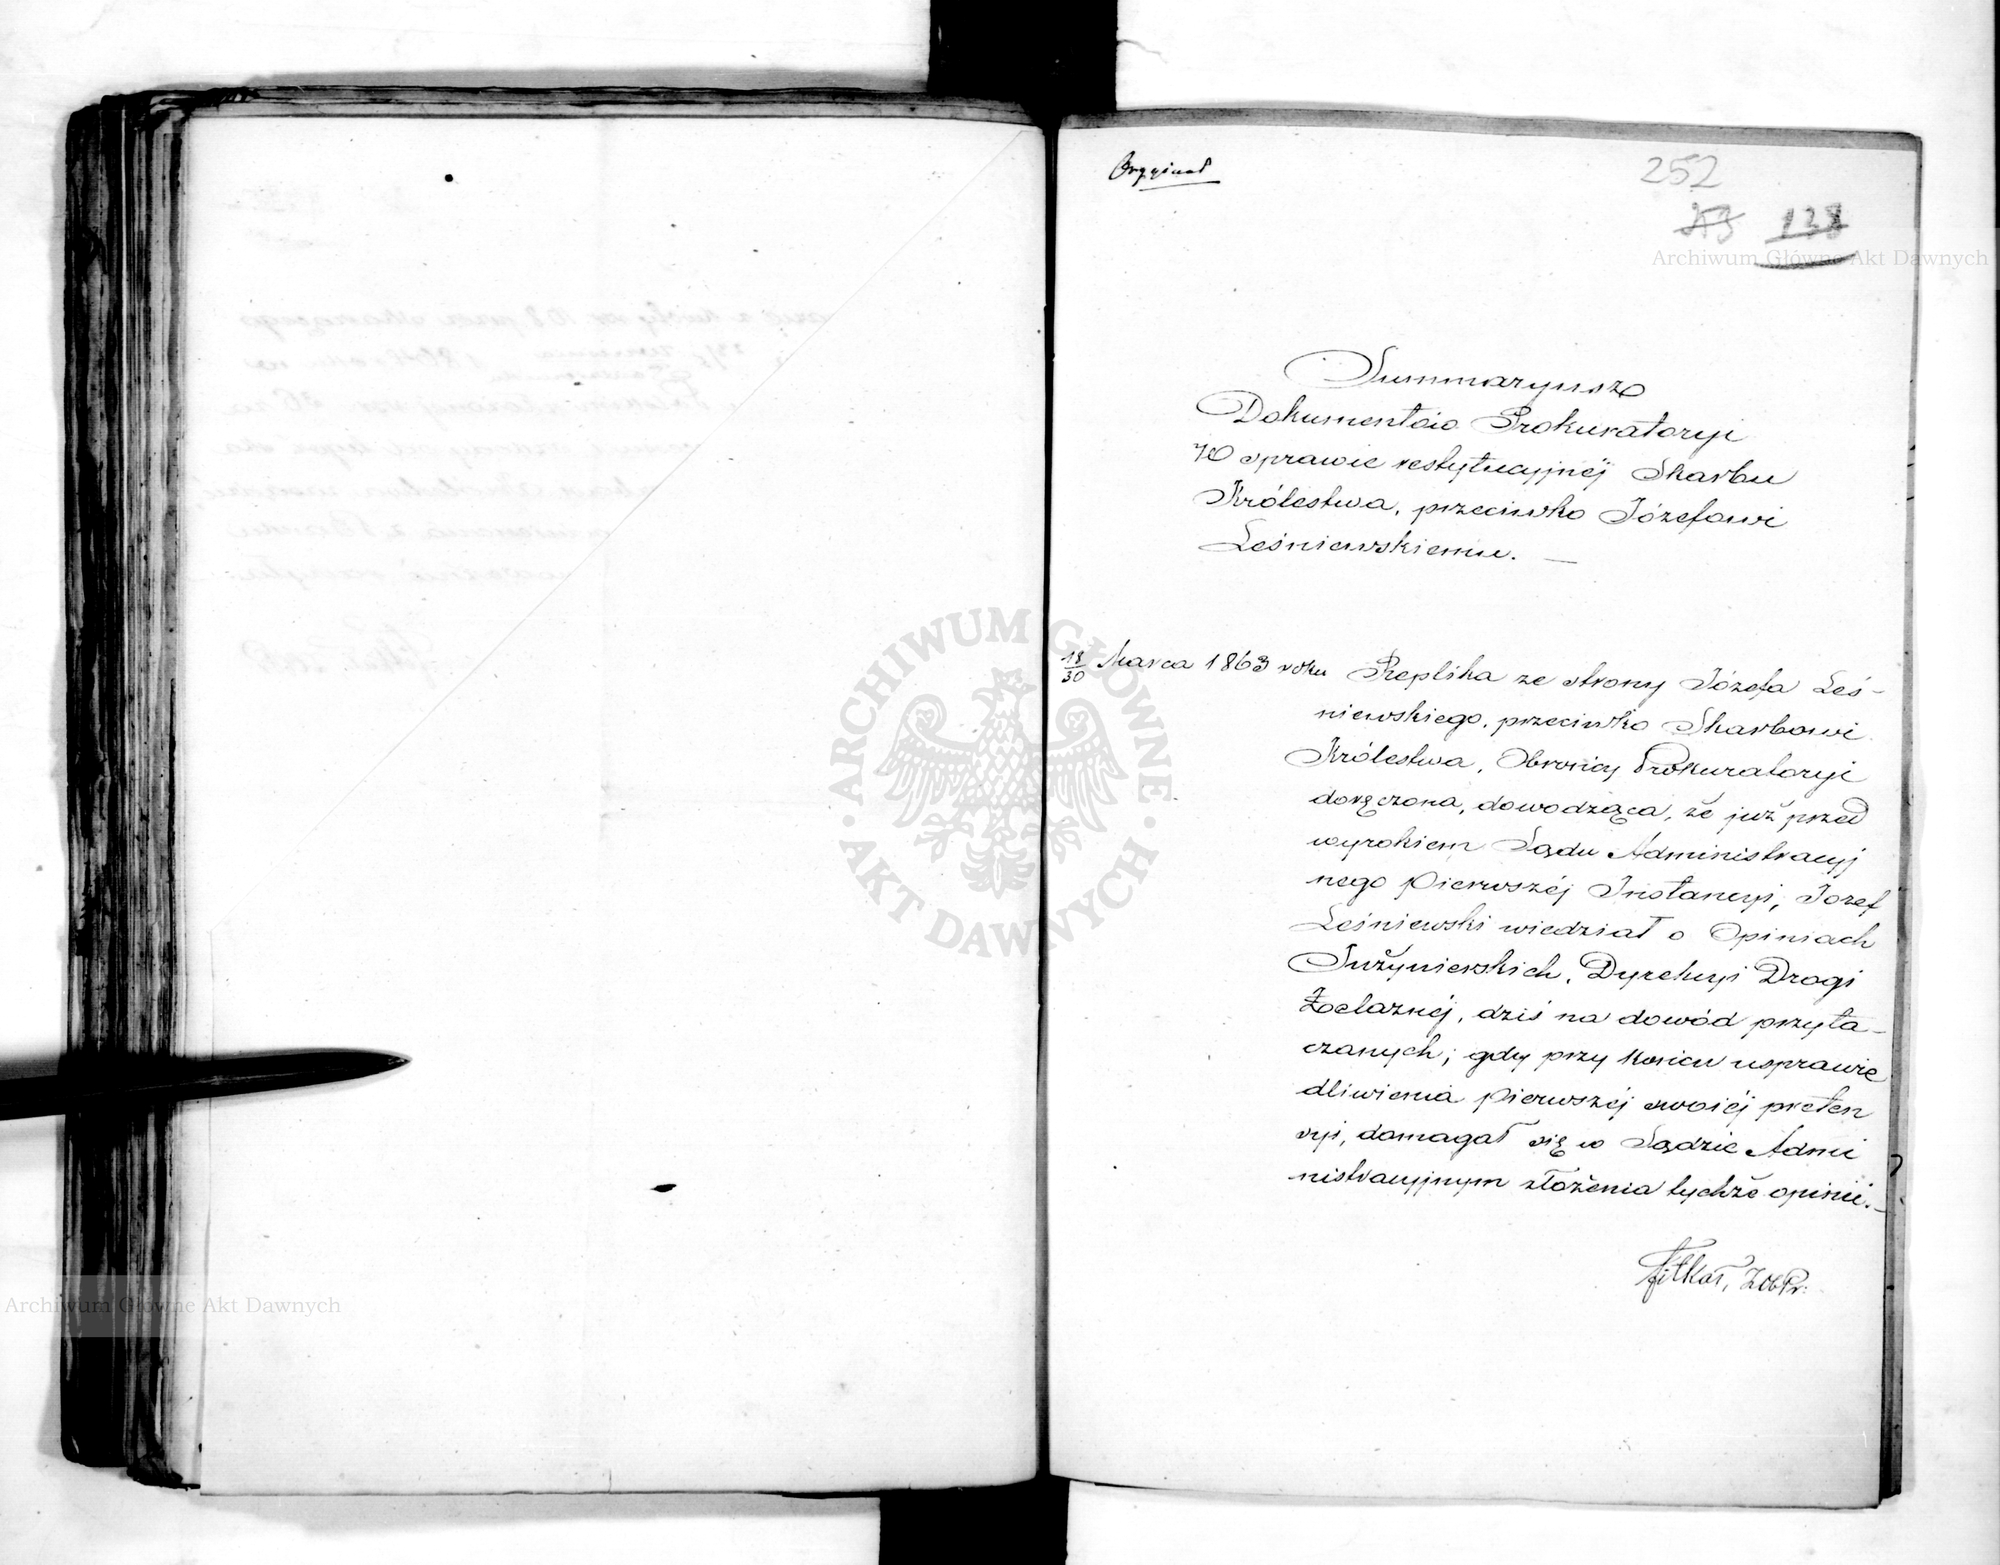 Oryginał
252
138
Archiwum Główne Akt Dawnych
Summaryusz
Dokumentów Prokuratoryi
W sprawie restytucyjnéj Skarbu
Królestwa, przeciwko Józefowi
Leśniewskiemu. —
18/30 Marca 1863 roku Replika ze strony Józefa Leś-
niewskiego, przeciwko Skarbowi
Królestwa, Obrońcy Prokuratoryi
doręczona, dowodząca, że już przed
wyrokiem Sądu Administracyj
nego pierwszéj Instancyi, Jozef
Leśniewski wiedział o Opiniach
Inżynierskich, Dyrekcyi Drogi
Żelaznéj, dziś na dowód przyta-
czanych; gdy przy końcu usprawie
dliwienia pierwszéj swoiéj preten
syi, domagał się w Sądzie Admi
nistracyjnym złożenia tychże opinii. —
ARCHIWUM GŁÓWNE · AKT DAWNYCH ·
Archiwum Główne Akt Dawnych